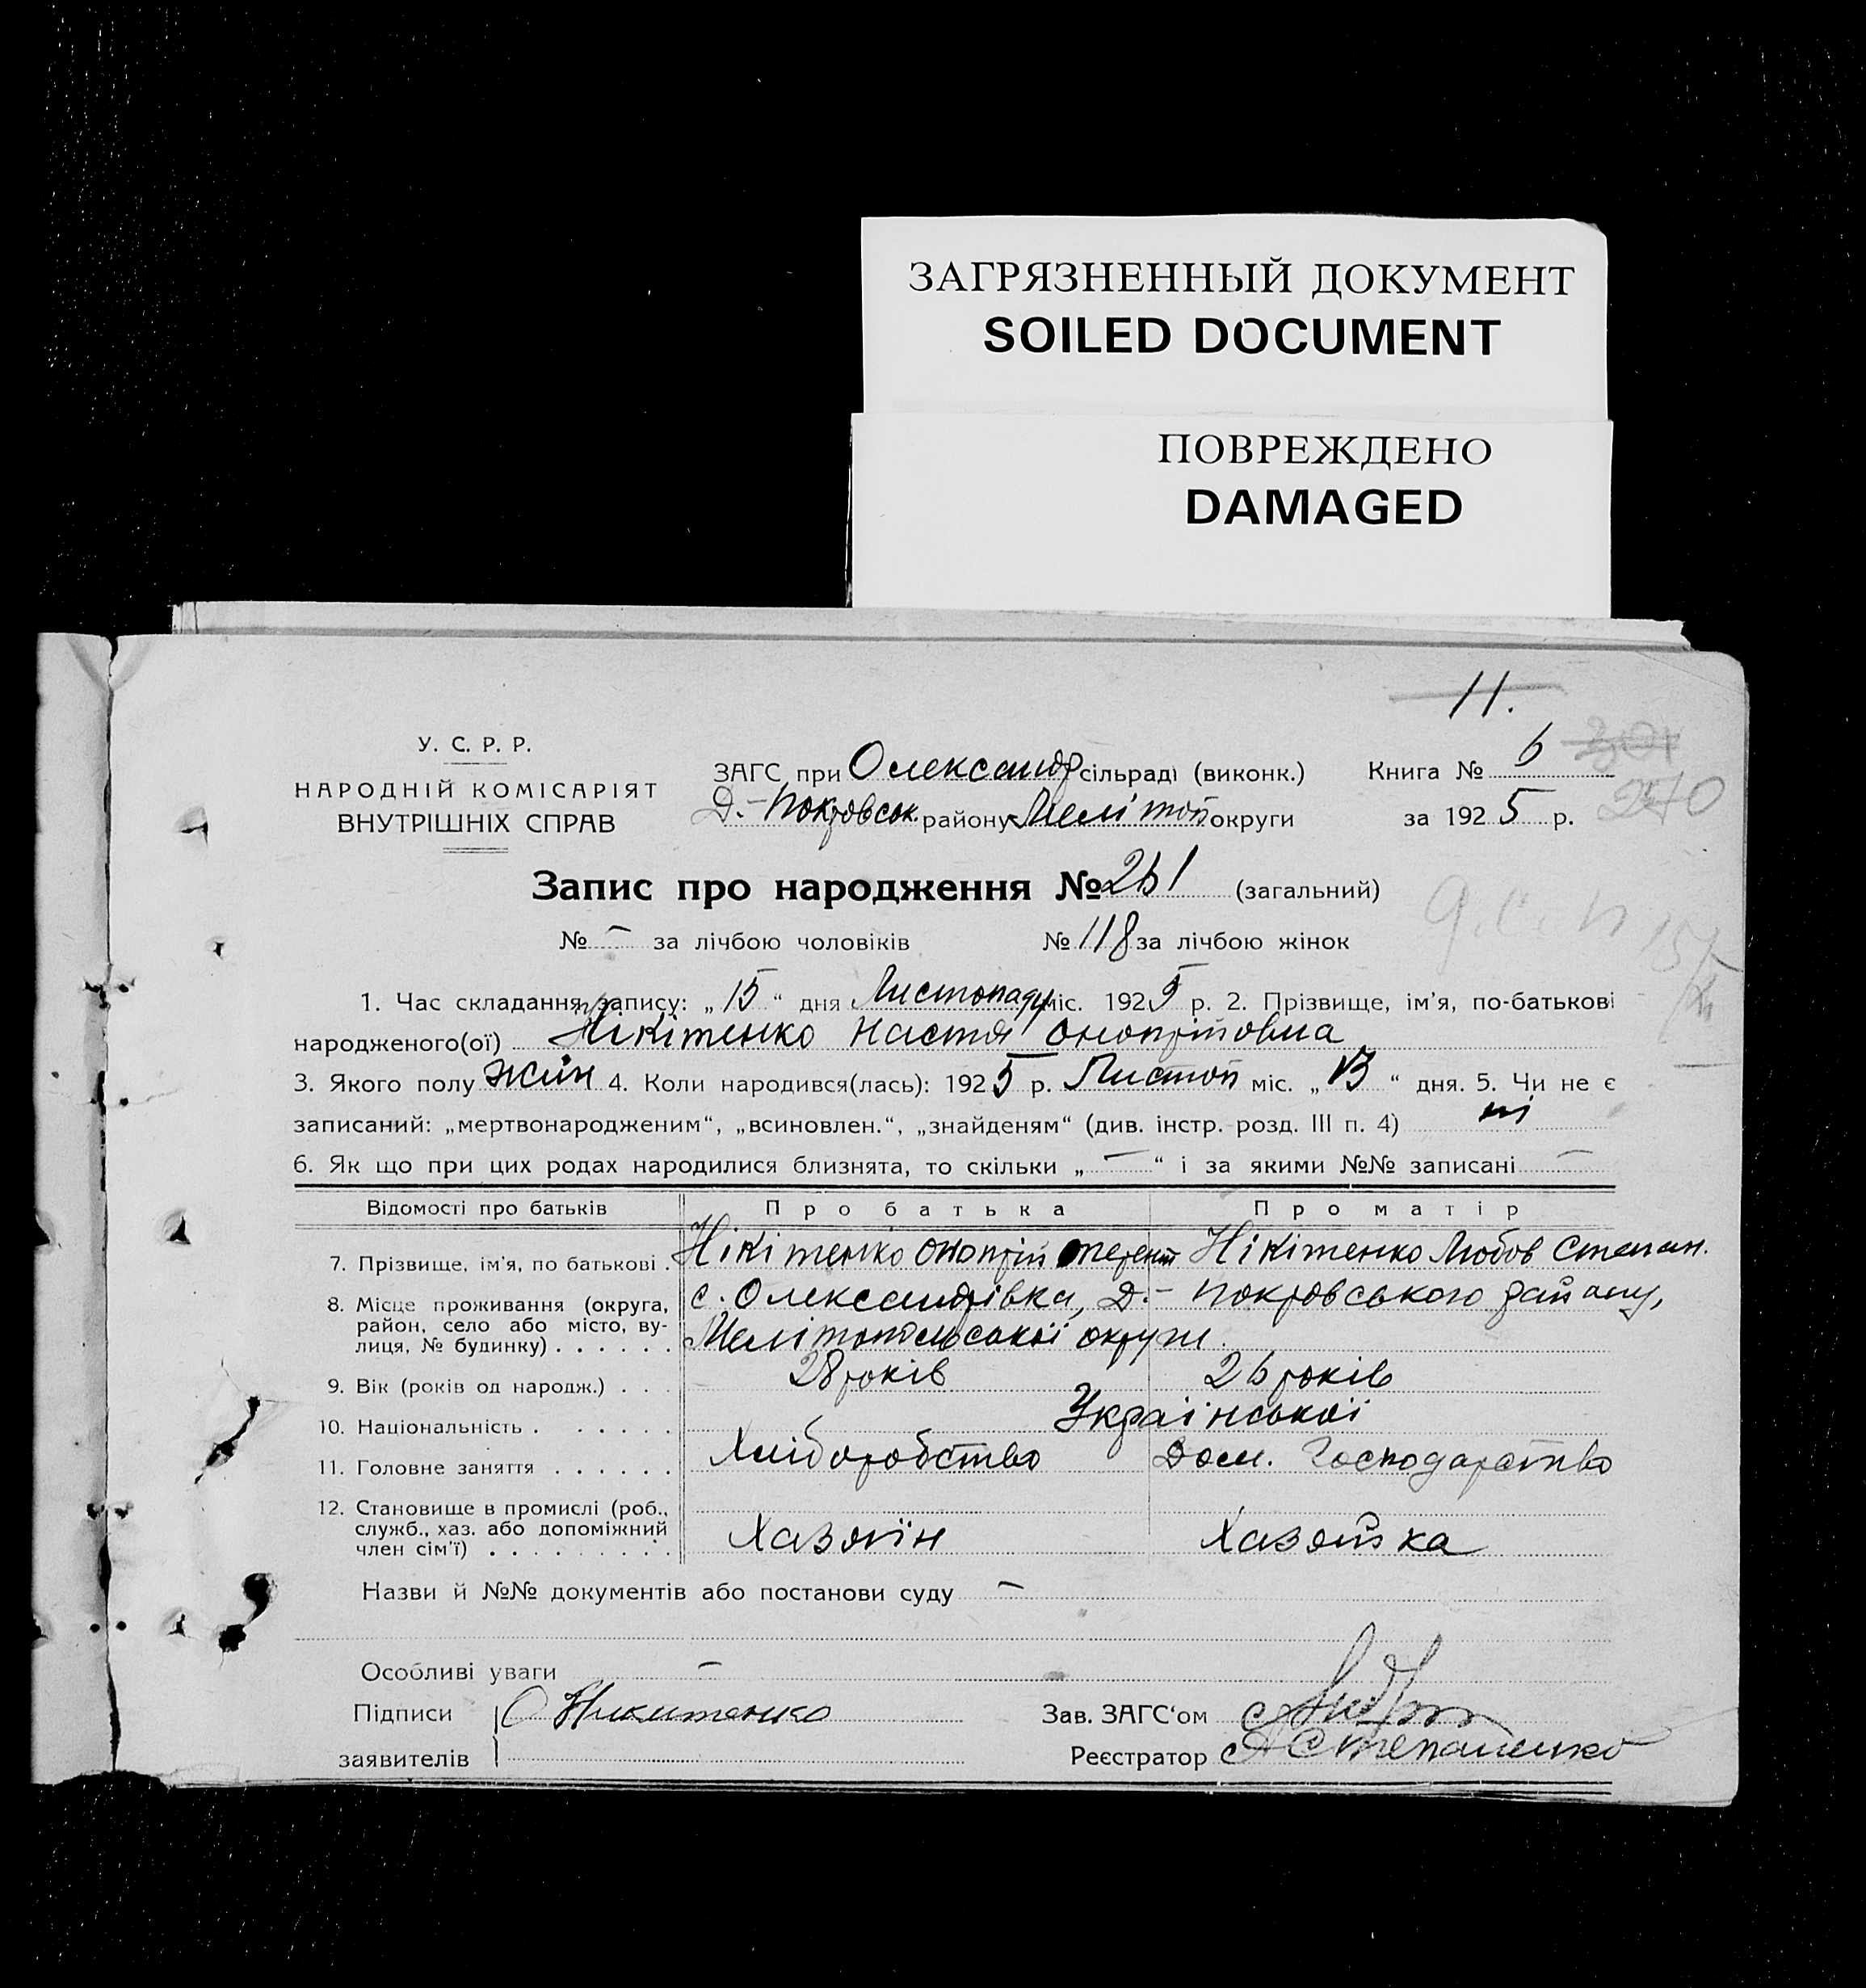 ЗАГРЯЗНЕННЫЙ ДОКУМЕНТ
SOILED DOCUMENT
ПОВРЕЖДЕНО
DAMAGED
11.
У. С. Р. Р.
НАРОДНІЙ КОМІСАРІЯТ
ВНУТРІШНІХ СПРАВ
ЗАГС при Олександр сільраді (виконк.)
Д.-Покровськ. району Мелітоп округи
Книга № 6
301
270
за 1925 р.
Запис про народження № 261 (загальний)
№ – за лічбою чоловіків № 118 за лічбою жінок
1. Час складання запису: „15“ дня Листопаду міс. 1925 р. 2. Прізвище, ім'я, по-батькові
народженого(ої) Нікітенко Настя Онопрійовна
3. Якого полу жін 4. Коли народився(лась): 1925 р. Листоп міс. „13“ дня. 5. Чи не є
записаний: „мертвонародженим“, „всиновлен.“, „знайденям“ (див. інстр. розд. III п. 4) ні
6. Як що при цих родах народилися близнята, то скільки „–“ і за якими №№ записані –
Відомості про батьків Про батька Про матір
7. Прізвище, ім'я, по батькові . Нікітенко Онопрій Терент Нікітенко Любов Степан.
8. Місце проживання (округа, район, село або місто, вулиця, № будинку) . . . . . . с. Олександрівка, Д.- Покровського району,
Мелітопольської округи.
9. Вік (років од народж.) . . . 28 років 26 років
10. Національність . . . . . . Української
11. Головне заняття . . . . . . Хліборобство Дом. Господарство
12. Становище в промислі (роб., служб., хаз. або допоміжний член сім'ї) . . . . . . . . . Хазяїн Хазяйка
Назви й №№ документів або постанови суду –
Особливі уваги –
Підписи заявителів О Никитенко
Зав. ЗАГС'ом
Реєстратор А Степаненко